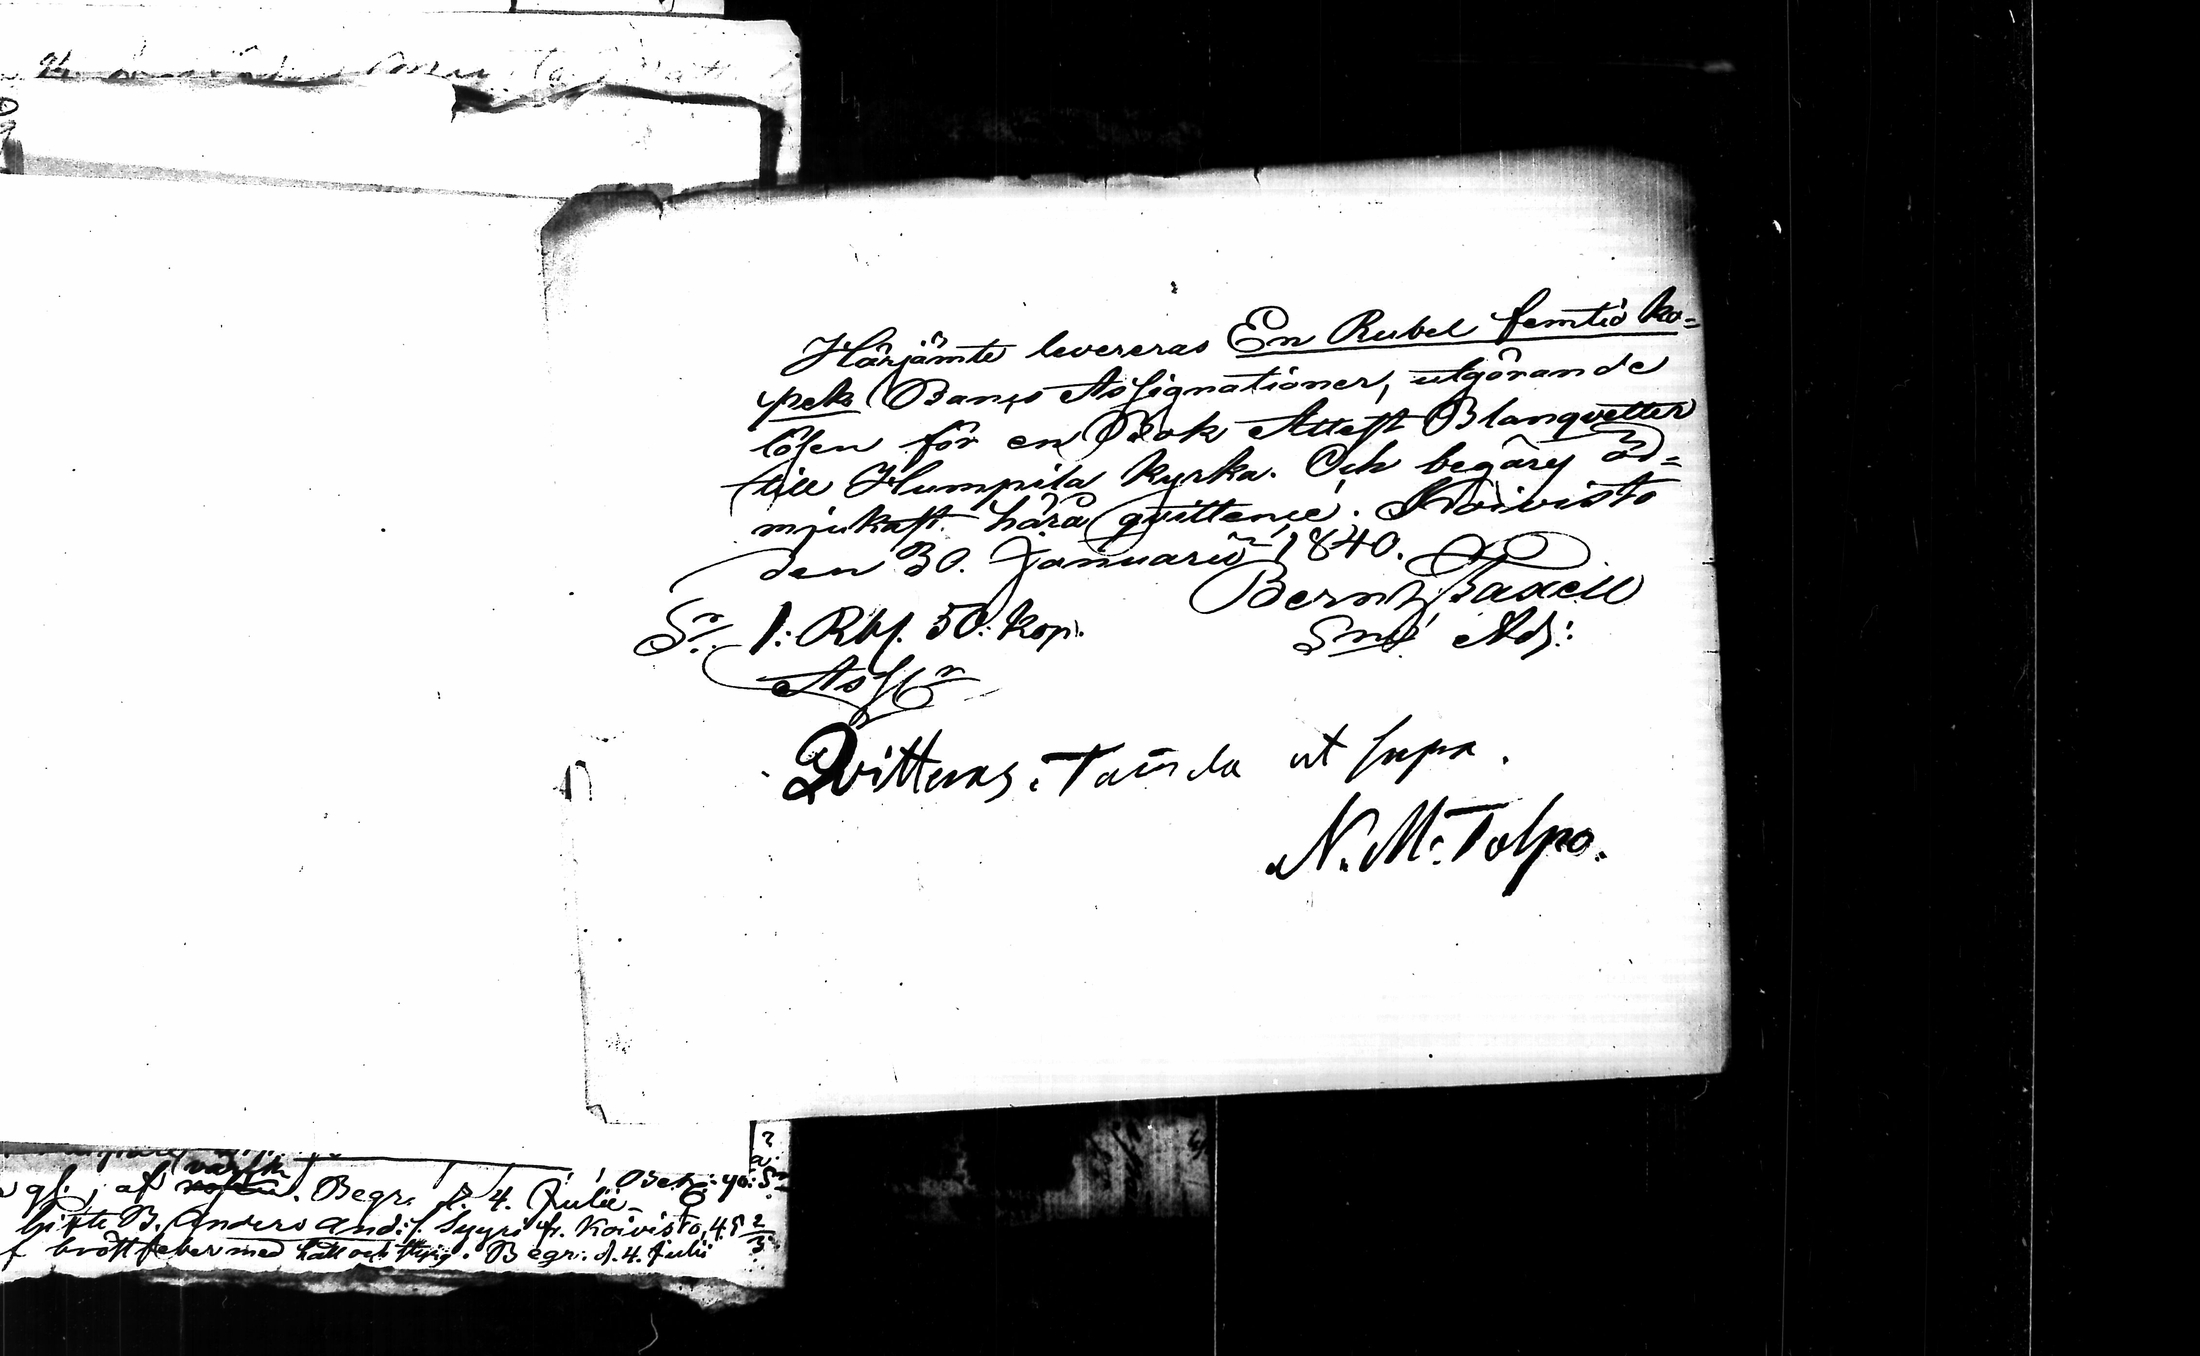 Härjämte levereras En Rubel femtio ko=
pek Banço Assignationer, utgörande
lösen för en Bok Attest Blanqvetter
till Humpila kyrka. Och begäres öd=
mjukast härå qvittence. Koivisto
den 30. Januarii 1840.
Bernh Taxell
Adj:
S:r 1: Rbl. 50: kop.
Ass:r
Qvitteras, Tamela ut supra.
N. M. Tolpo.
af Begr. d. 4. Julii
B. Anders And: s. fr. Koivisto, 45
bröstfeber med håll och styng. Begr. d. 4. Julii